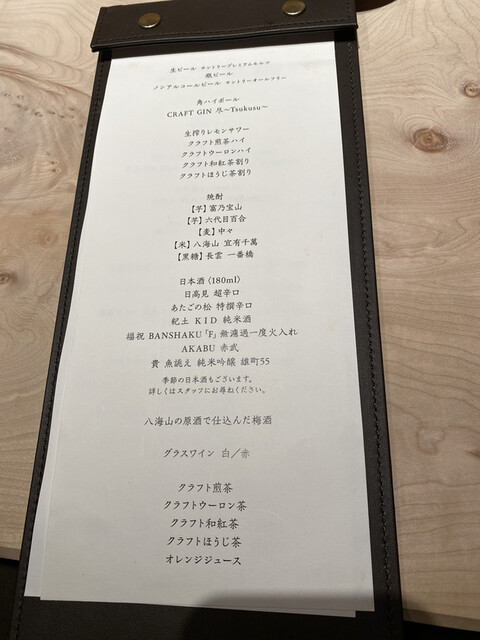 生ビール サントリープレミアムモルツ
瓶ビール
ノンアルコールビール サントリーオールフリー
角ハイボール
CRAFT GIN 尽〜Tsukusu〜
生搾りレモンサワー
クラフト煎茶ハイ
クラフトウーロンハイ
クラフト和紅茶割り
クラフトほうじ茶割り
焼酎
【芋】富乃宝山
【芋】六代目百合
【麦】中々
【米】八海山 宜有千萬
【黒糖】長雲 一番橋
日本酒（180ml）
日高見 超辛口
あたごの松 特撰辛口
紀土 KID 純米酒
福祝 BANSHAKU「F」無濾過一度火入れ
AKABU 赤武
貴 魚誂え 純米吟醸 雄町55
季節の日本酒もございます。
詳しくはスタッフにお尋ねください。
八海山の原酒で仕込んだ梅酒
グラスワイン 白／赤
クラフト煎茶
クラフトウーロン茶
クラフト和紅茶
クラフトほうじ茶
オレンジジュース